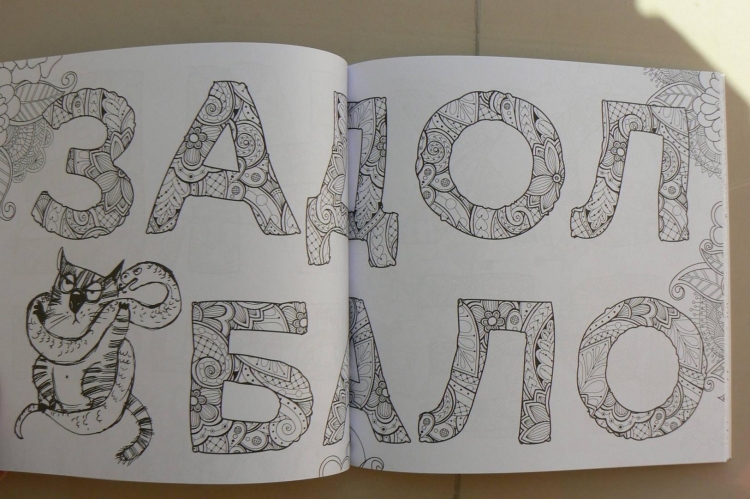 ЗАДОЛ
БАЛО